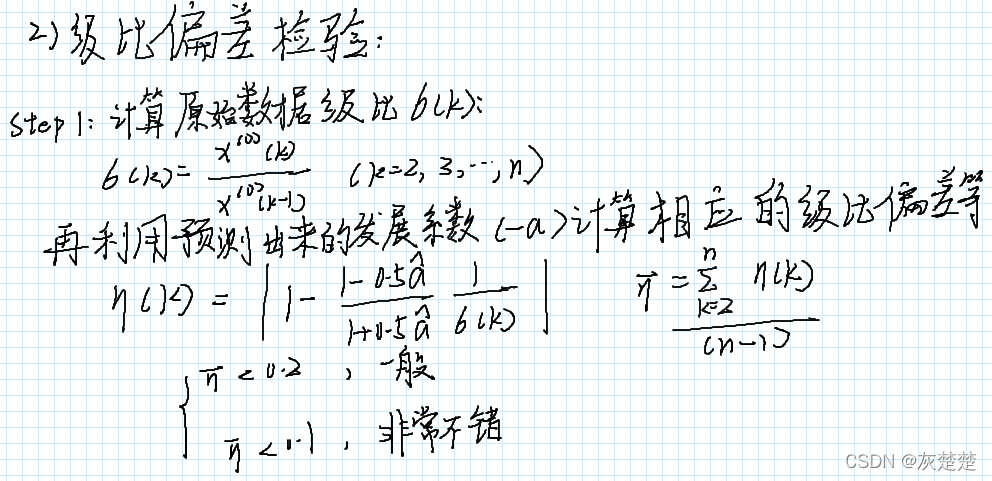 2) 级比偏差检验:
Step 1: 计算原始数据级比 σ(k):
σ(k) = x⁽⁰⁾(k) / x⁽⁰⁾(k-1) (k=2, 3, ⋯, n)
再利用预测出来的发展系数 (-a) 计算相应的级比偏差等
η(k) = | 1 - (1-0.5â)/(1+0.5â) 1/σ(k) | η̄ = ∑_{k=2}^{n} η(k) / (n-1)
{ η̄ < 0.2 , 一般
η̄ < 0.1 , 非常不错
CSDN @灰楚楚